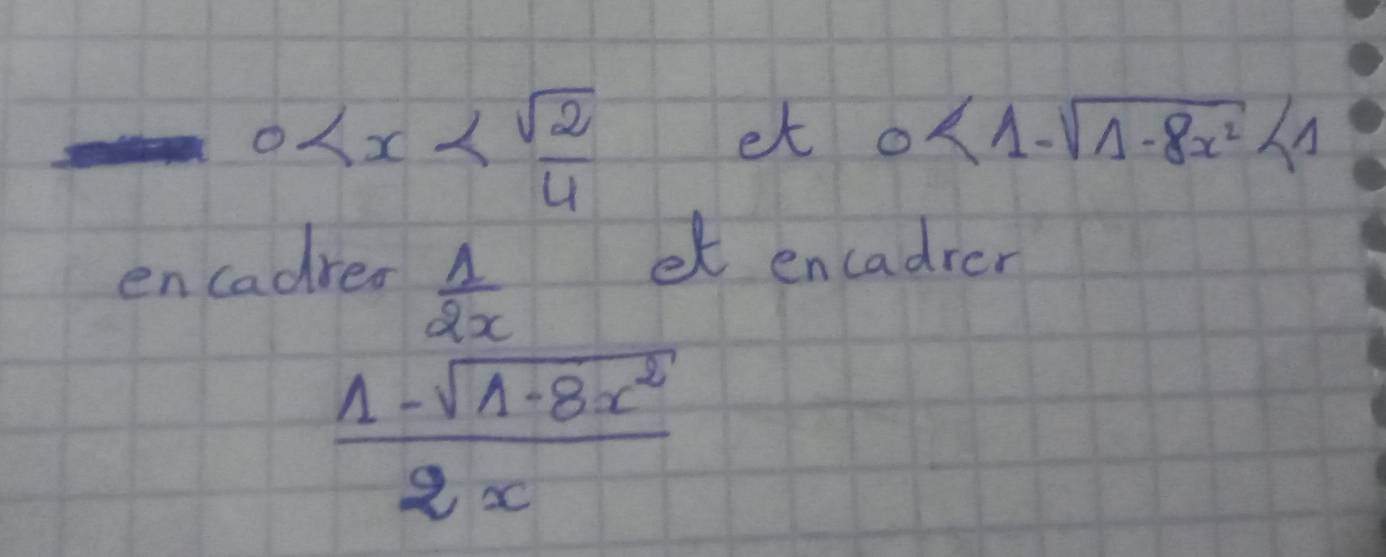 0 < x < √2/4 et 0 < 1 - √(1 - 8x²) < 1
encadrer 1/2x et encadrer
(1 - √(1 - 8x²))/2x